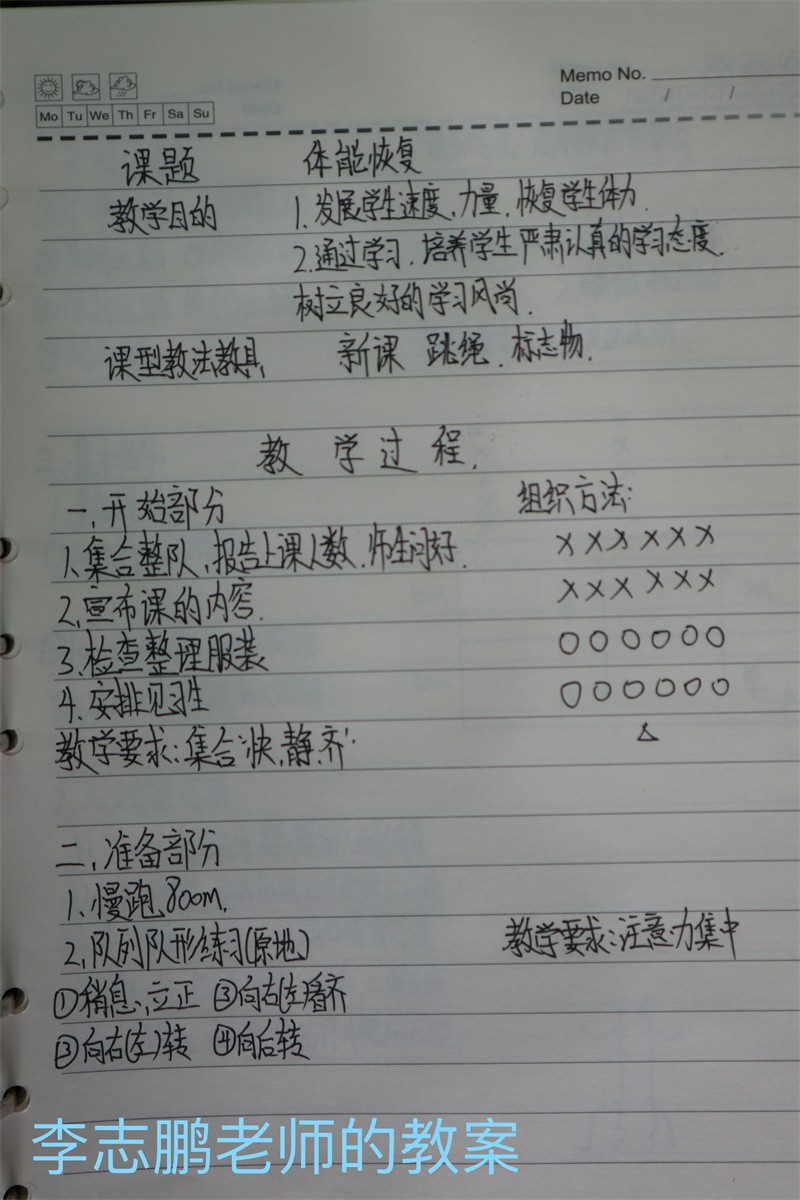 Memo No.
Date / /
Mo Tu We Th Fr Sa Su
课题 体能恢复
教学目的 1、发展学生速度、力量、恢复学生体力.
2、通过学习、培养学生严肃认真的学习态度.
树立良好的学习风尚.
课型教法教具 新课 跳绳、标志物.
教学过程.
一、开始部分 组织方法:
1、集合整队、报告上课人数、师生问好. ××××××
2、宣布课的内容. ××××××
3、检查整理服装 ○○○○○○
4、安排见习生 ○○○○○○
教学要求:集合“快、静、齐” △
二、准备部分
1、慢跑800m.
2、队列队形练习(原地) 教学要求:注意力集中
①稍息、立正 ③向右(左)看齐
③向右(左)转 ④向后转
李志鹏老师的教案